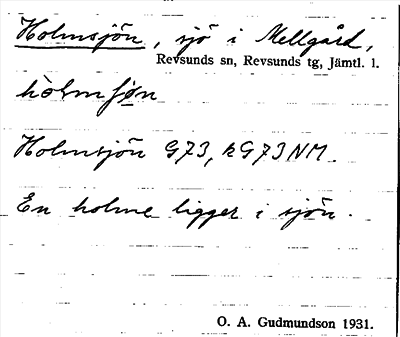 Holmsjön, sjö i Mellgård,
Revsunds sn, Revsunds tg, Jämtl. l.
hòlmʃø̄n
Holmsjön G73, kG73NM.
En holme ligger i sjön.
O. A. Gudmundson 1931.